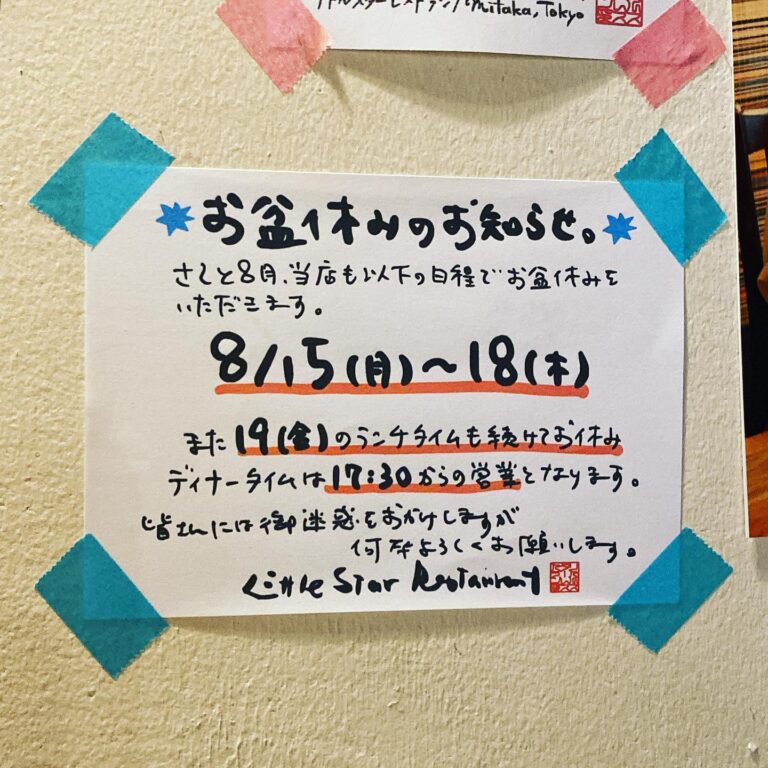 リトルスターレストラン/Mitaka, Tokyo
お盆休みのお知らせ。
さて8月、当店も以下の日程でお盆休みを
いただきます。
8/15(月)〜18(木)
また19(金)のランチタイムも続けてお休み
ディナータイムは17:30からの営業となります。
皆さんには御迷惑をおかけしますが
何卒よろしくお願いします。
Little Star Restaurant